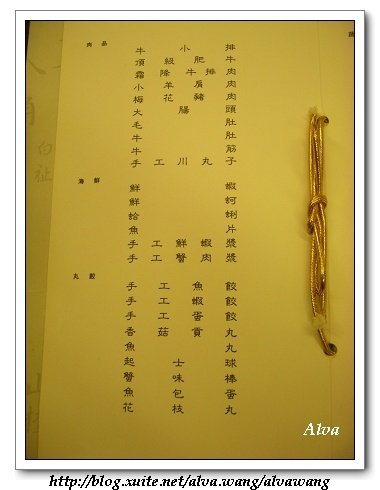 肉品
牛小排
頂級肥牛
霜降牛排肉
小羊肩肉
梅花豬肉
大腸頭
毛肚
牛肚
牛筋
手工川丸子
海鮮
鮮蝦
鮮蚵
蛤蜊
魚片
手工鮮蝦漿
手工蟹肉漿
丸餃
手工魚餃
手工蝦餃
手工蛋餃
香菇貢丸
魚丸
起士球
蟹味棒
魚包蛋
花枝丸
白祉
Alva
http://blog.xuite.net/alva.wang/alvawang